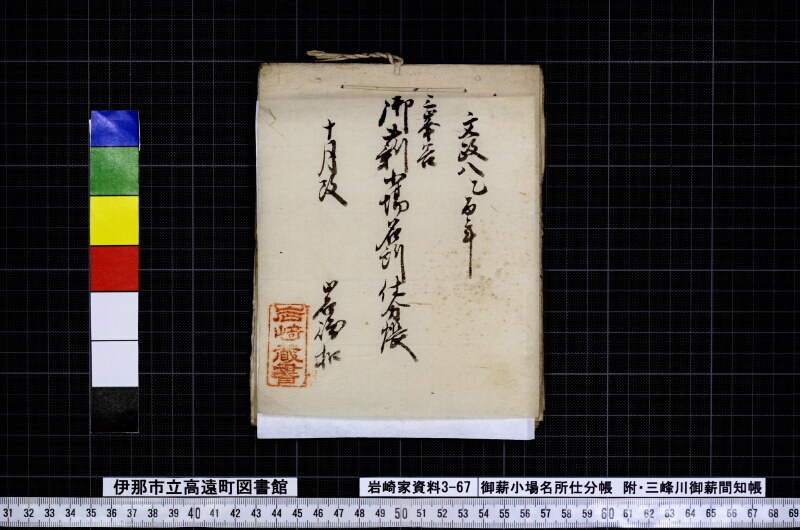 文政八乙酉年
三峯谷
御薪小場名所仕分帳
十月改
岩崎扣
岩崎蔵書
伊那市立高遠町図書館
岩崎家資料3-67
御薪小場名所仕分帳 附・三峰川御薪間知帳
31 32 33 34 35 36 37 38 39 40 41 42 43 44 45 46 47 48 49 50 51 52 53 54 55 56 57 58 59 60 61 62 63 64 65 66 67 68 69